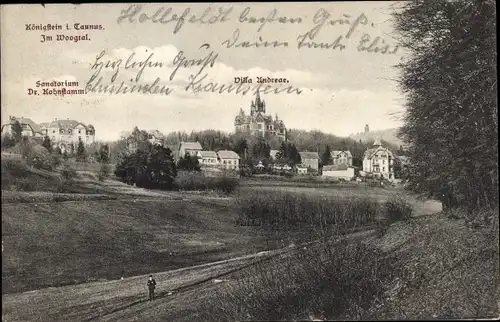 Königstein i. Taunus.
Im Woogtal.
Sanatorium
Dr. Kohnstamm.
Villa Andreae.
Hollefeldt besten Gruß
Deine
Tante Elise
Herzlichen Gruß